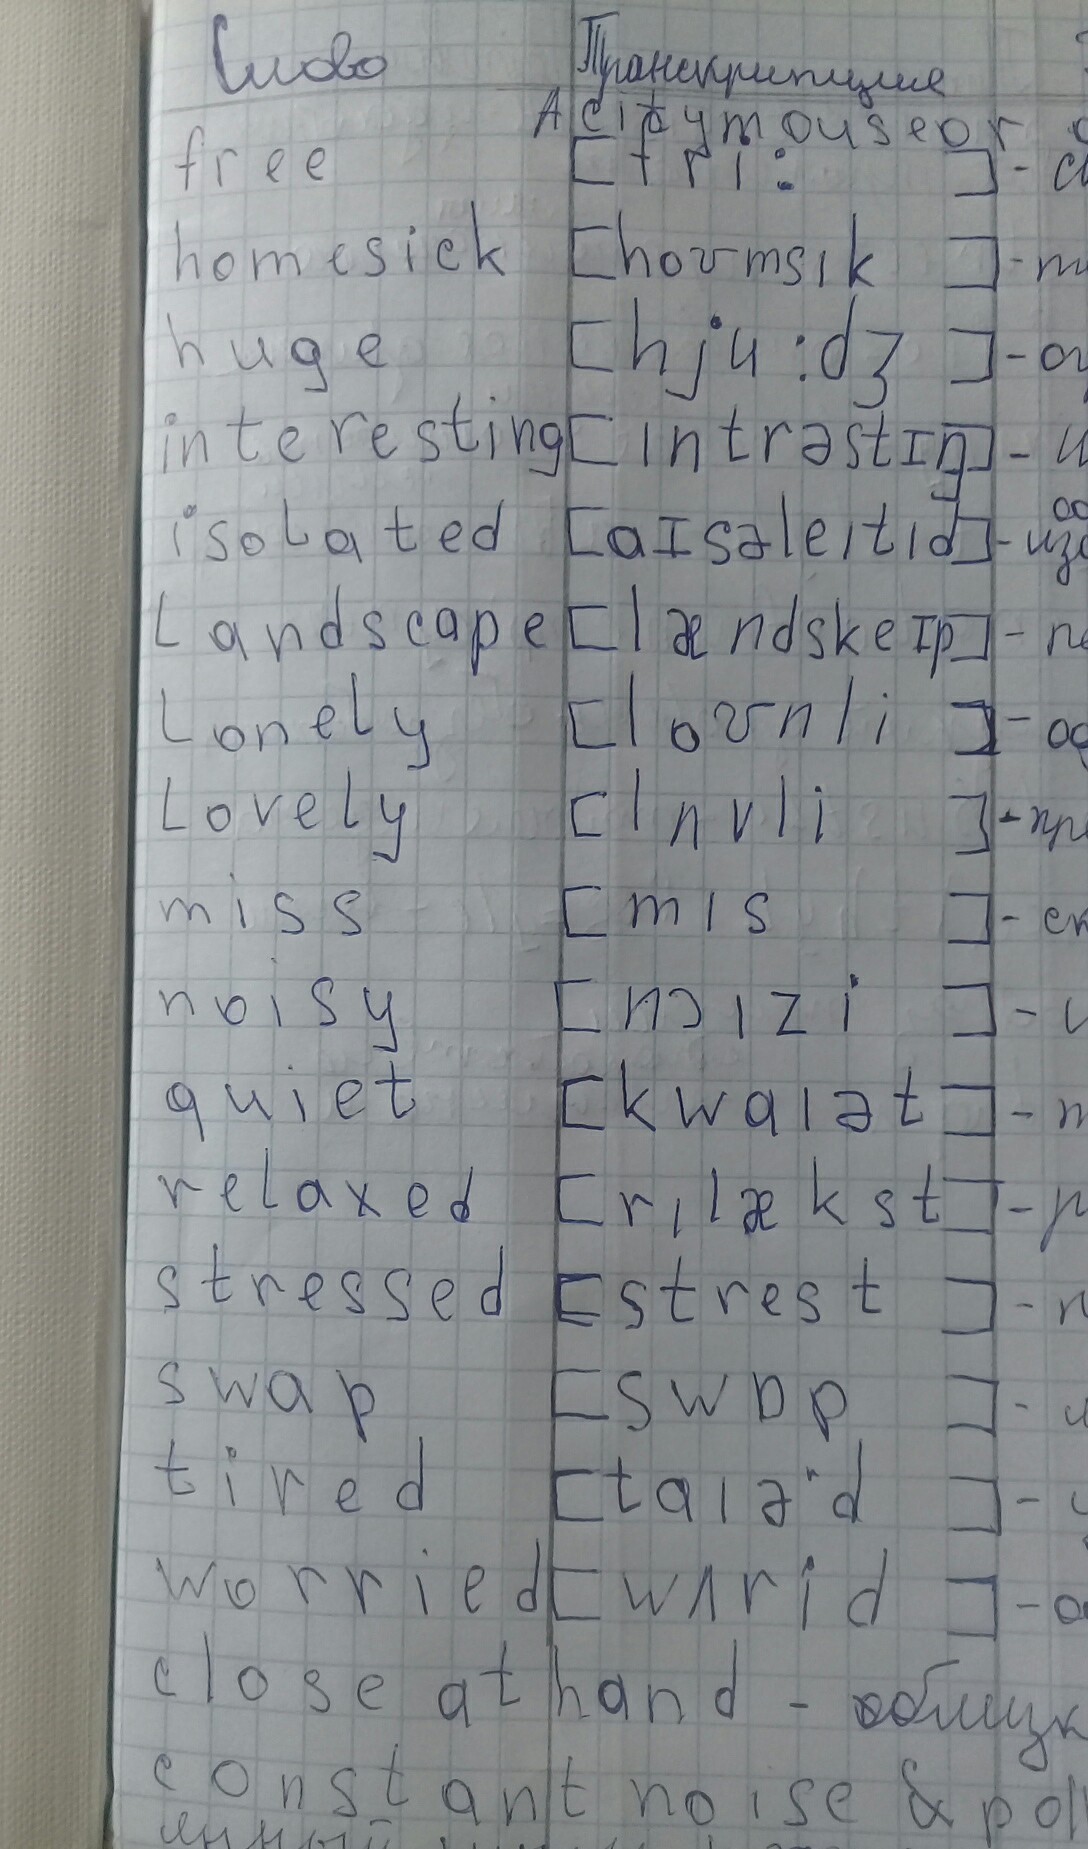 Слово Транскрипция
A city mouse or
free [fri: ] - с
homesick [hoʊmsık ] - т
huge [hju:dʒ ] - ог
interesting [ıntrəstıŋ] - и
isolated [aısəleıtıd] - изо
Landscape [lændskeıp] - п
Lonely [loʊnli ] - од
Lovely [lnvli ] - пр
miss [mıs ] - ск
noisy [nɔızi ] -
quiet [kwaıət ] - т
relaxed [rılækst ] - р
stressed [strest ] - п
swap [swɒp ] -
tired [taıə'd ] -
worried [wʌrid ] - о
close at hand -
constant noise & pol